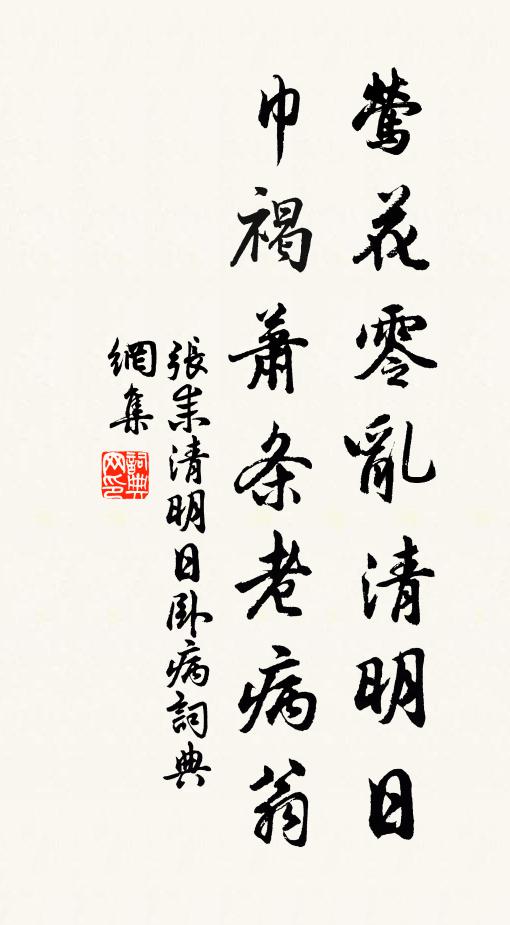 鶯花零亂清明日
巾褐蕭条老病翁
張耒清明日卧病詞典
網集
詞典
网印